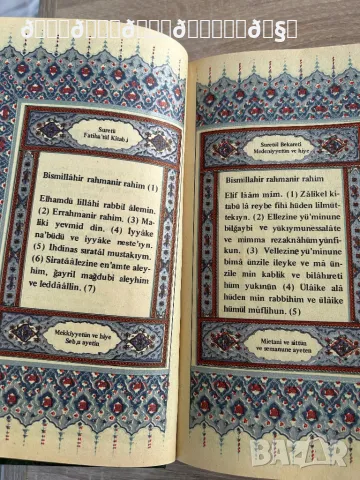 Suretü
Fatiha'tül Kitabı
Bismillâhir rahmanir rahim (1)
Elhamdü lillâhi rabbil âlemin.
(2) Errahmanir rahim. (3) Ma-
liki yevmid din. (4) Iyyâke
na'büdü ve iyyâke neste'ıyn.
(5) Ihdinas sıratal mustakıym.
(6) Sıratâlezine en'amte aley-
him, ğayril mağdubi aleyhim
ve leddââllin. (7)
Mekkiyyetün ve hiye
ayetün
Suretül Bekareti
Medeniyyetün ve hiye
Bismillâhir rahmanir rahim
Elif lââm mim. (1) Zâlikel ki-
tabü lâ reybe fihi hüden lilmüt-
tekıyn. (2) Ellezine yü'minune
bilğaybi ve yükıymunessalâte
ve mimma rezaknâhümyünfi-
kun. (3) Vellezine yü'minune
bimâ ünzile ileyke ve mâ ün-
zile min kablik ve bilâhireti
hüm yukınün. (4) Ülâike alâ
hüden min rabbihim ve ülâike
hümül müflihun. (5)
Mietani ve sittün
ve semanune ayeten
BAZAR
bg